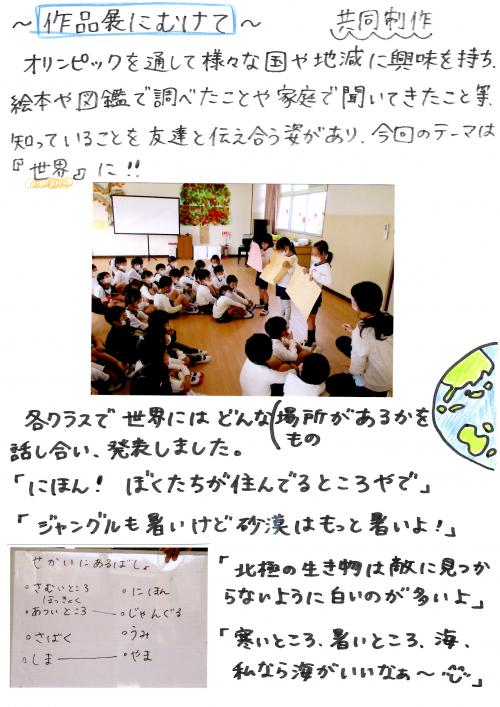 ～作品展にむけて～ 共同制作
オリンピックを通して様々な国や地減に興味を持ち、
絵本や図鑑で調べたことや家庭で聞いてきたこと等、
知っていることを友達と伝え合う姿があり、今回のテーマは
『世界』に!!
各クラスで世界にはどんな(場所があるかを
もの
話し合い、発表しました。
「にほん! ぼくたちが住んでるところやで」
「ジャングルも暑いけど砂漠はもっと暑いよ!」
せかいにあるばしょ
○さむいところ ○にほん
ほっきょく
○あついところ ○じゃんぐる
○さばく ○うみ
○しま ○やま
「北極の生き物は敵に見つか
らないように白いのが多いよ」
「寒いところ、暑いところ、海、
私なら海がいいなぁ～」